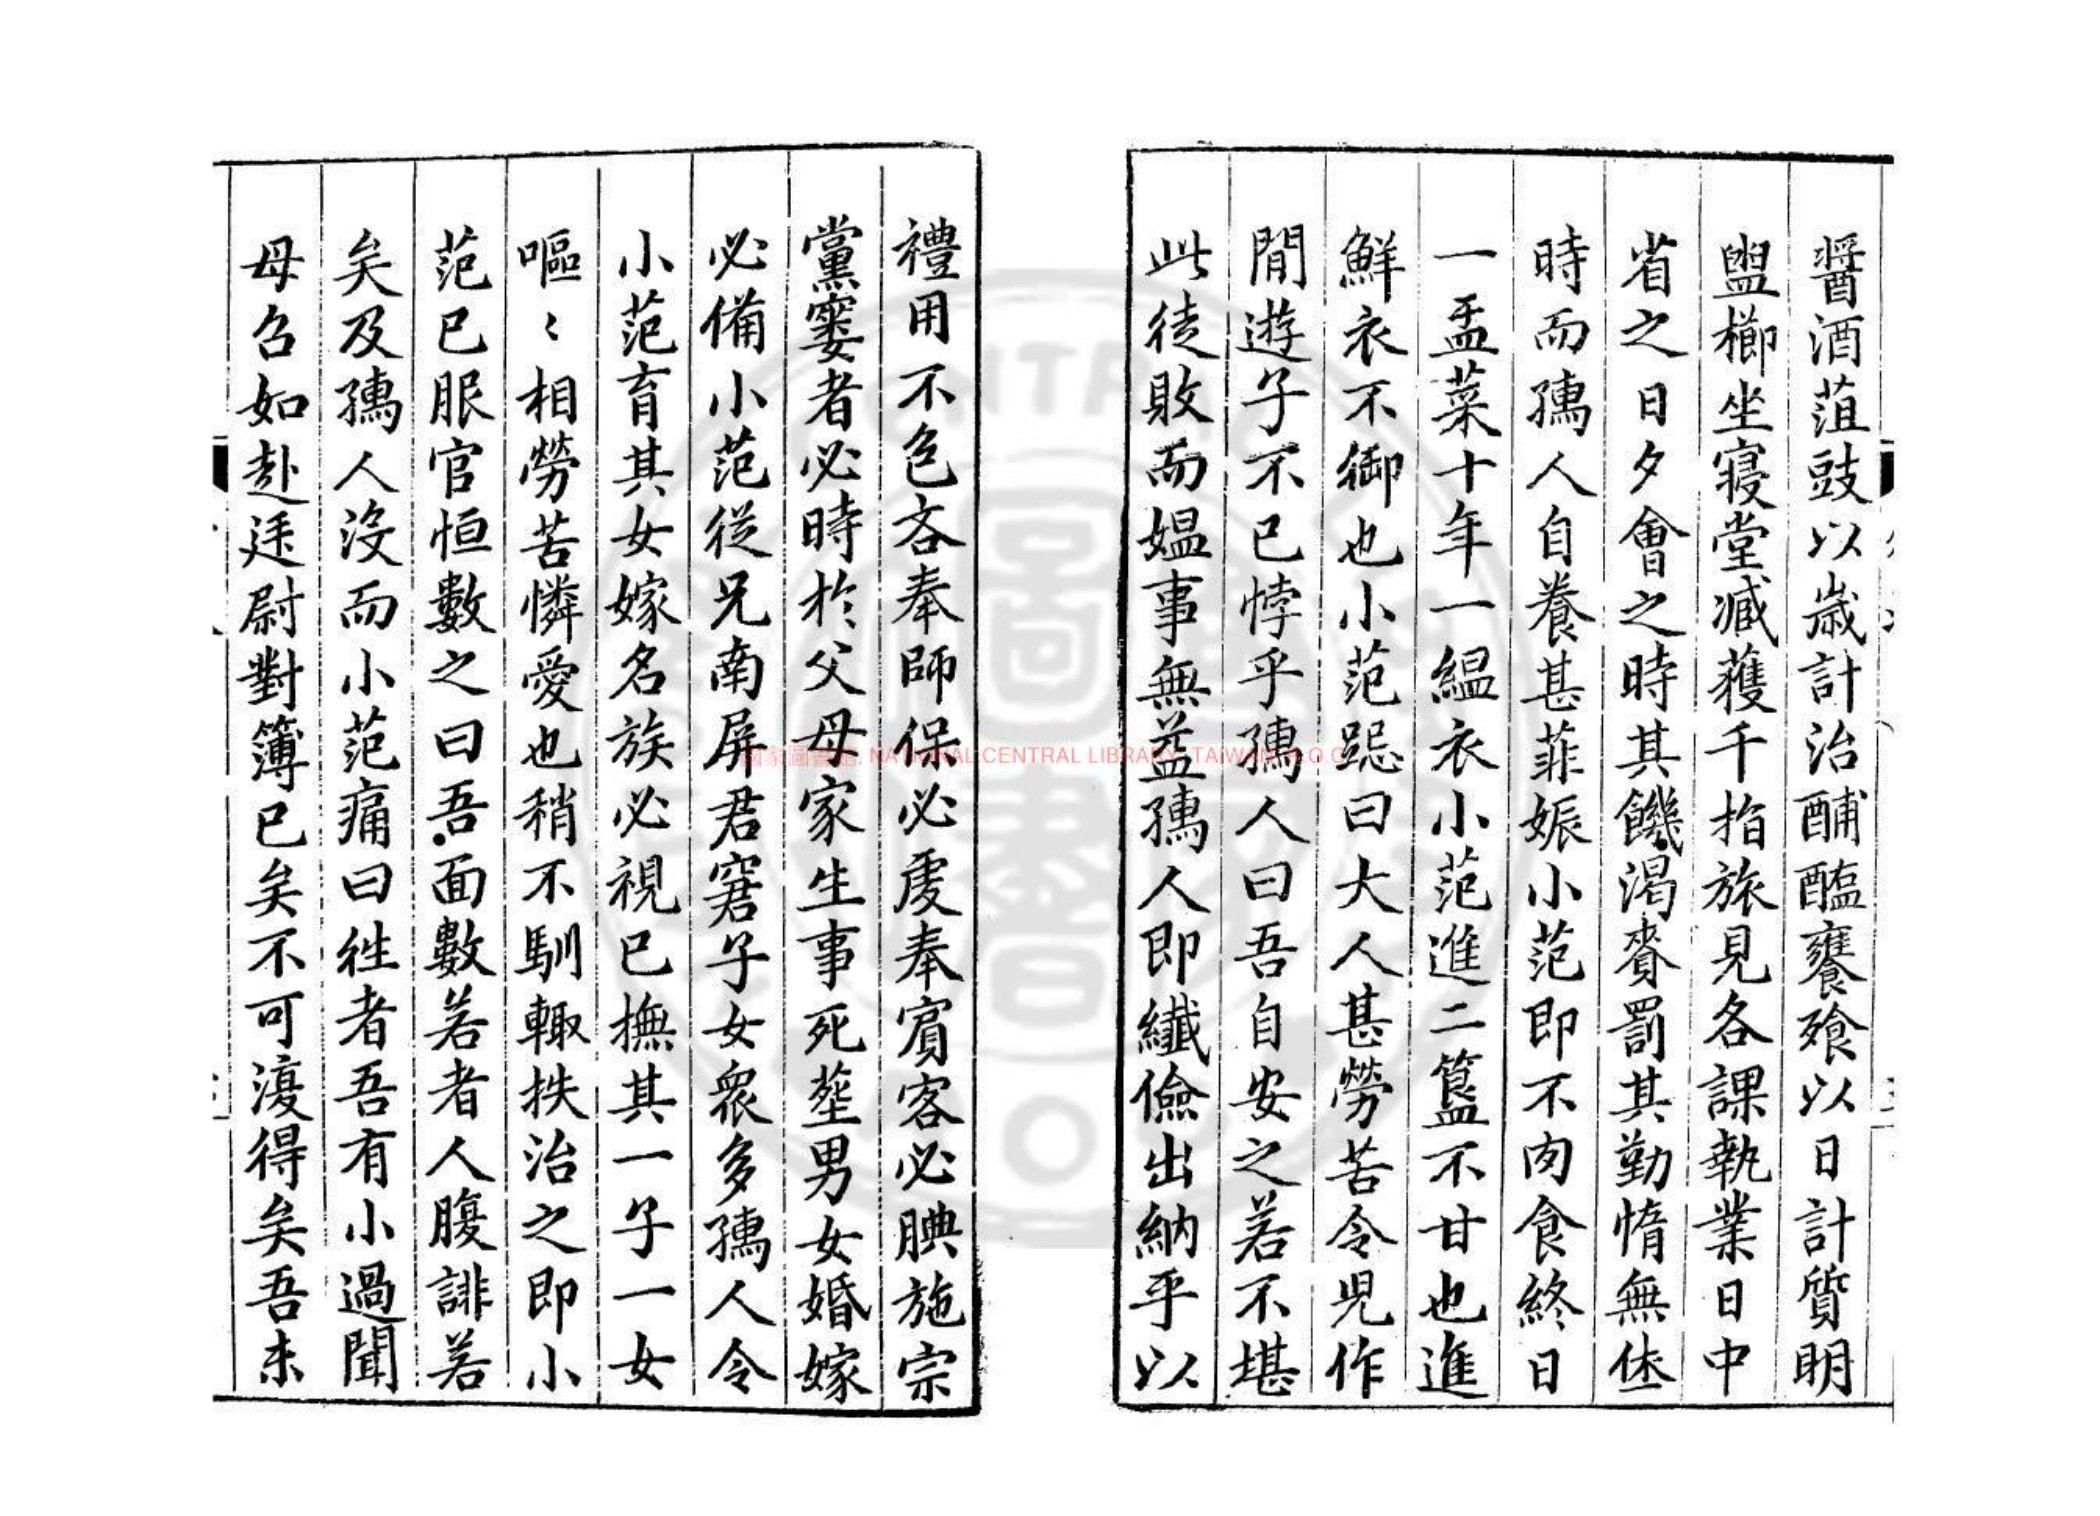 醬酒菹豉以歲計治酺醢饔飱以日計質明
盥櫛坐寢堂臧獲千指旅見各課執業日中
省之日夕會之時其饑渴賚罰其勤惰無怯
時而孺人自養甚菲娠小范即不肉食終日
一盂菜十年一緼衣小范進二簋不甘也進
鮮衣不御也小范跽曰大人甚勞苦令兒作
閒遊子不已悖乎孺人曰吾自安之若不堪
此徒敗而媼事無益孺人即纖儉出納乎以
禮用不色吝奉師保必虔奉賓客必腆施宗
黨窶者必時於父母家生事死塟男女婚嫁
必備小范從兄南屏君窘子女衆多孺人令
小范育其女嫁名族必視已撫其一子一女
嘔〻相勞苦憐愛也稍不馴輙抶治之即小
范已服官恒數之曰吾面數若者人腹誹若
矣及孺人沒而小范痛曰徃者吾有小過聞
母召如赴廷尉對簿已矣不可復得矣吾未
國家圖書館 NATIONAL CENTRAL LIBRARY, TAIWAN R.O.C